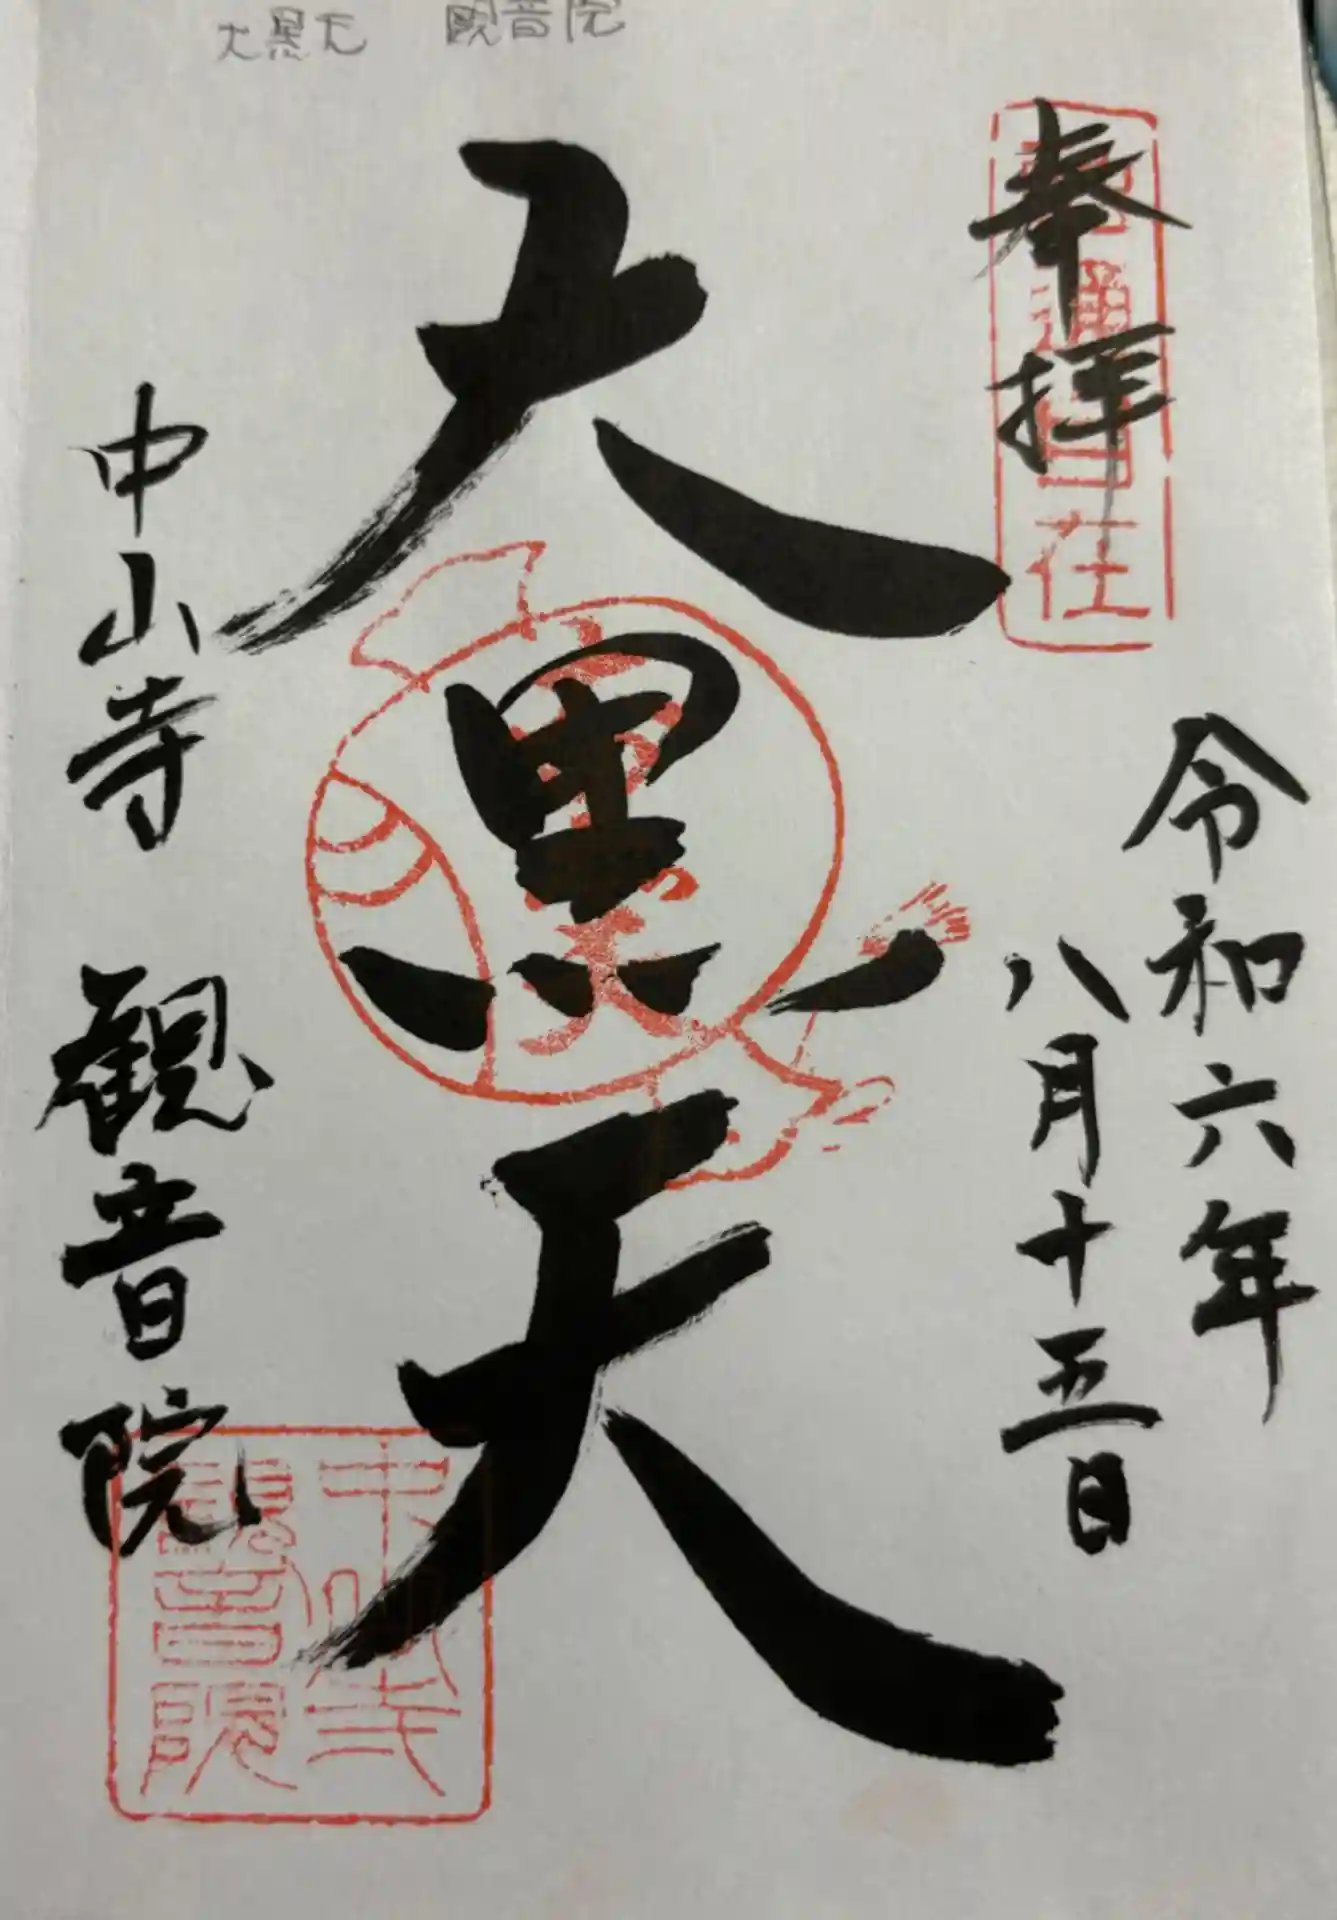 大黒天 観音院
奉拝
令和六年
八月十五日
大黒天
中山寺 観音院
中山寺
観音院